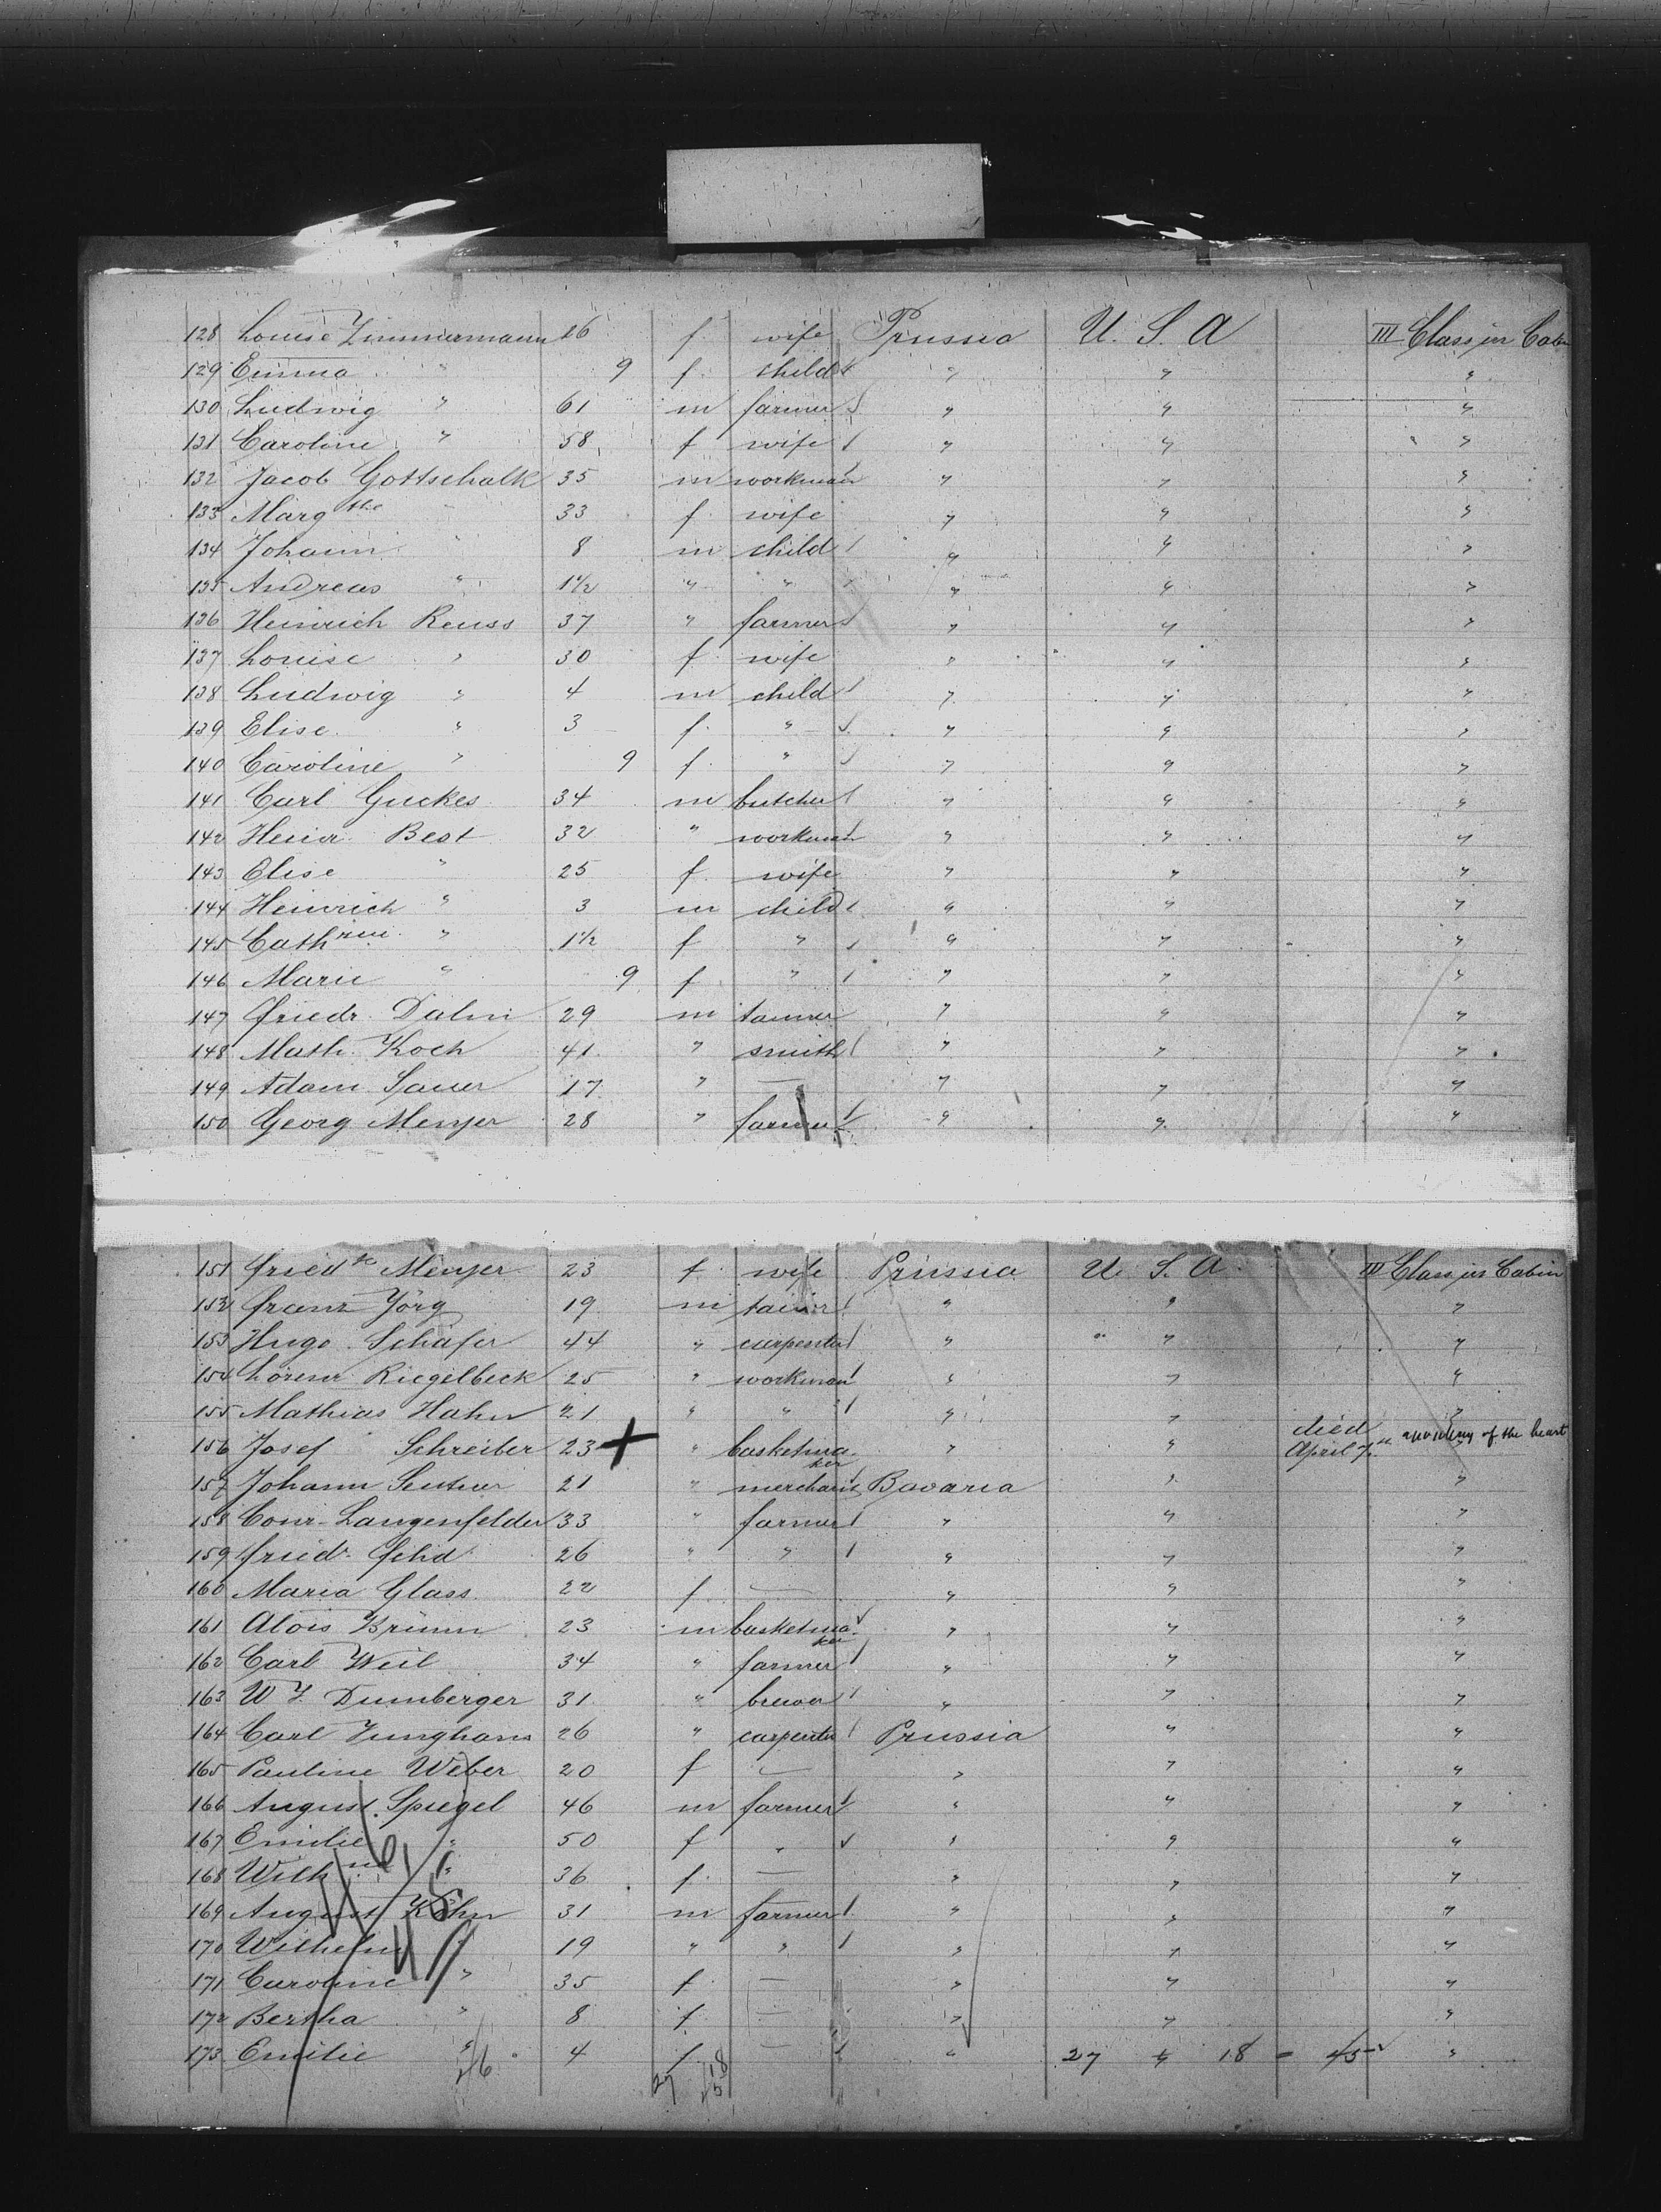 128 Louise Zimmermann 26 f. wife Prussia U. S. A III Class in Cabin
129 Emma " 9 f. child " " "
130 Ludwig " 61 m farmer " " "
131 Caroline " 58 f wife " " "
132 Jacob Gottschalk 35 m workman " " "
133 Marg the " 33 f. wife " " "
134 Johann " 8 m child " " "
135 Andreas " 1 1/2 " " " " "
136 Heinrich Reuss 37 " farmer " " "
137 Louise " 30 f. wife " " "
138 Ludwig " 4 m child " " "
139 Elise " 3 f. " " " "
140 Caroline " 9 f. " " " "
141 Carl Guckes 34 m butcher " " "
142 Heinr. Best 32 " workman " " "
143 Elise " 25 f. wife " " "
144 Heinrich " 3 m child " " "
145 Cath rine " 1 1/2 f " " " "
146 Marie " 9 f " " " "
147 Friedr. Dalm 29 m tanner " " "
148 Math. Koch 41 " smith " " "
149 Adam Sauer 17 " — " " "
150 Georg Menjer 28 " farmer " " "
151 Fried ke Menjer 23 f. wife Prussia U. S. A. III Class in Cabin
152 Franz Jörg 19 m tailor " " "
153 Hugo Schäfer 44 " carpenter " " "
154 Lorenz Riegelbeck 25 " workman " " "
155 Mathias Hahn 21 " " " " "
156 Josef Schreiber 23 + " basketmaker " " died April 7. of the heart
157 Johann 21 " merchant Bavaria " "
158 Conr. Langenfelder 33 " farmer " " "
159 Fried. 26 " " " " "
160 Maria Glass 22 f — " " "
161 Alois 23 m basketmaker " " "
162 Carl Weil 34 " farmer " " "
163 W J. Dumberger 31 " brewer " " "
164 Carl Junghans 26 " carpenter Prussia " "
165 Pauline Weber 20 f — " " "
166 August Spiegel 46 m farmer " " "
167 Emilie " 50 f " " " "
168 Wilh ne " 36 f. — " " "
169 August Köhn 31 m farmer " " "
170 Wilhelm " 19 " " " " "
171 Caroline " 35 f — " " "
172 Bertha " 8 f. — " " "
173 Emilie " 4 f — " 27 " 18 = 45 "
27 18